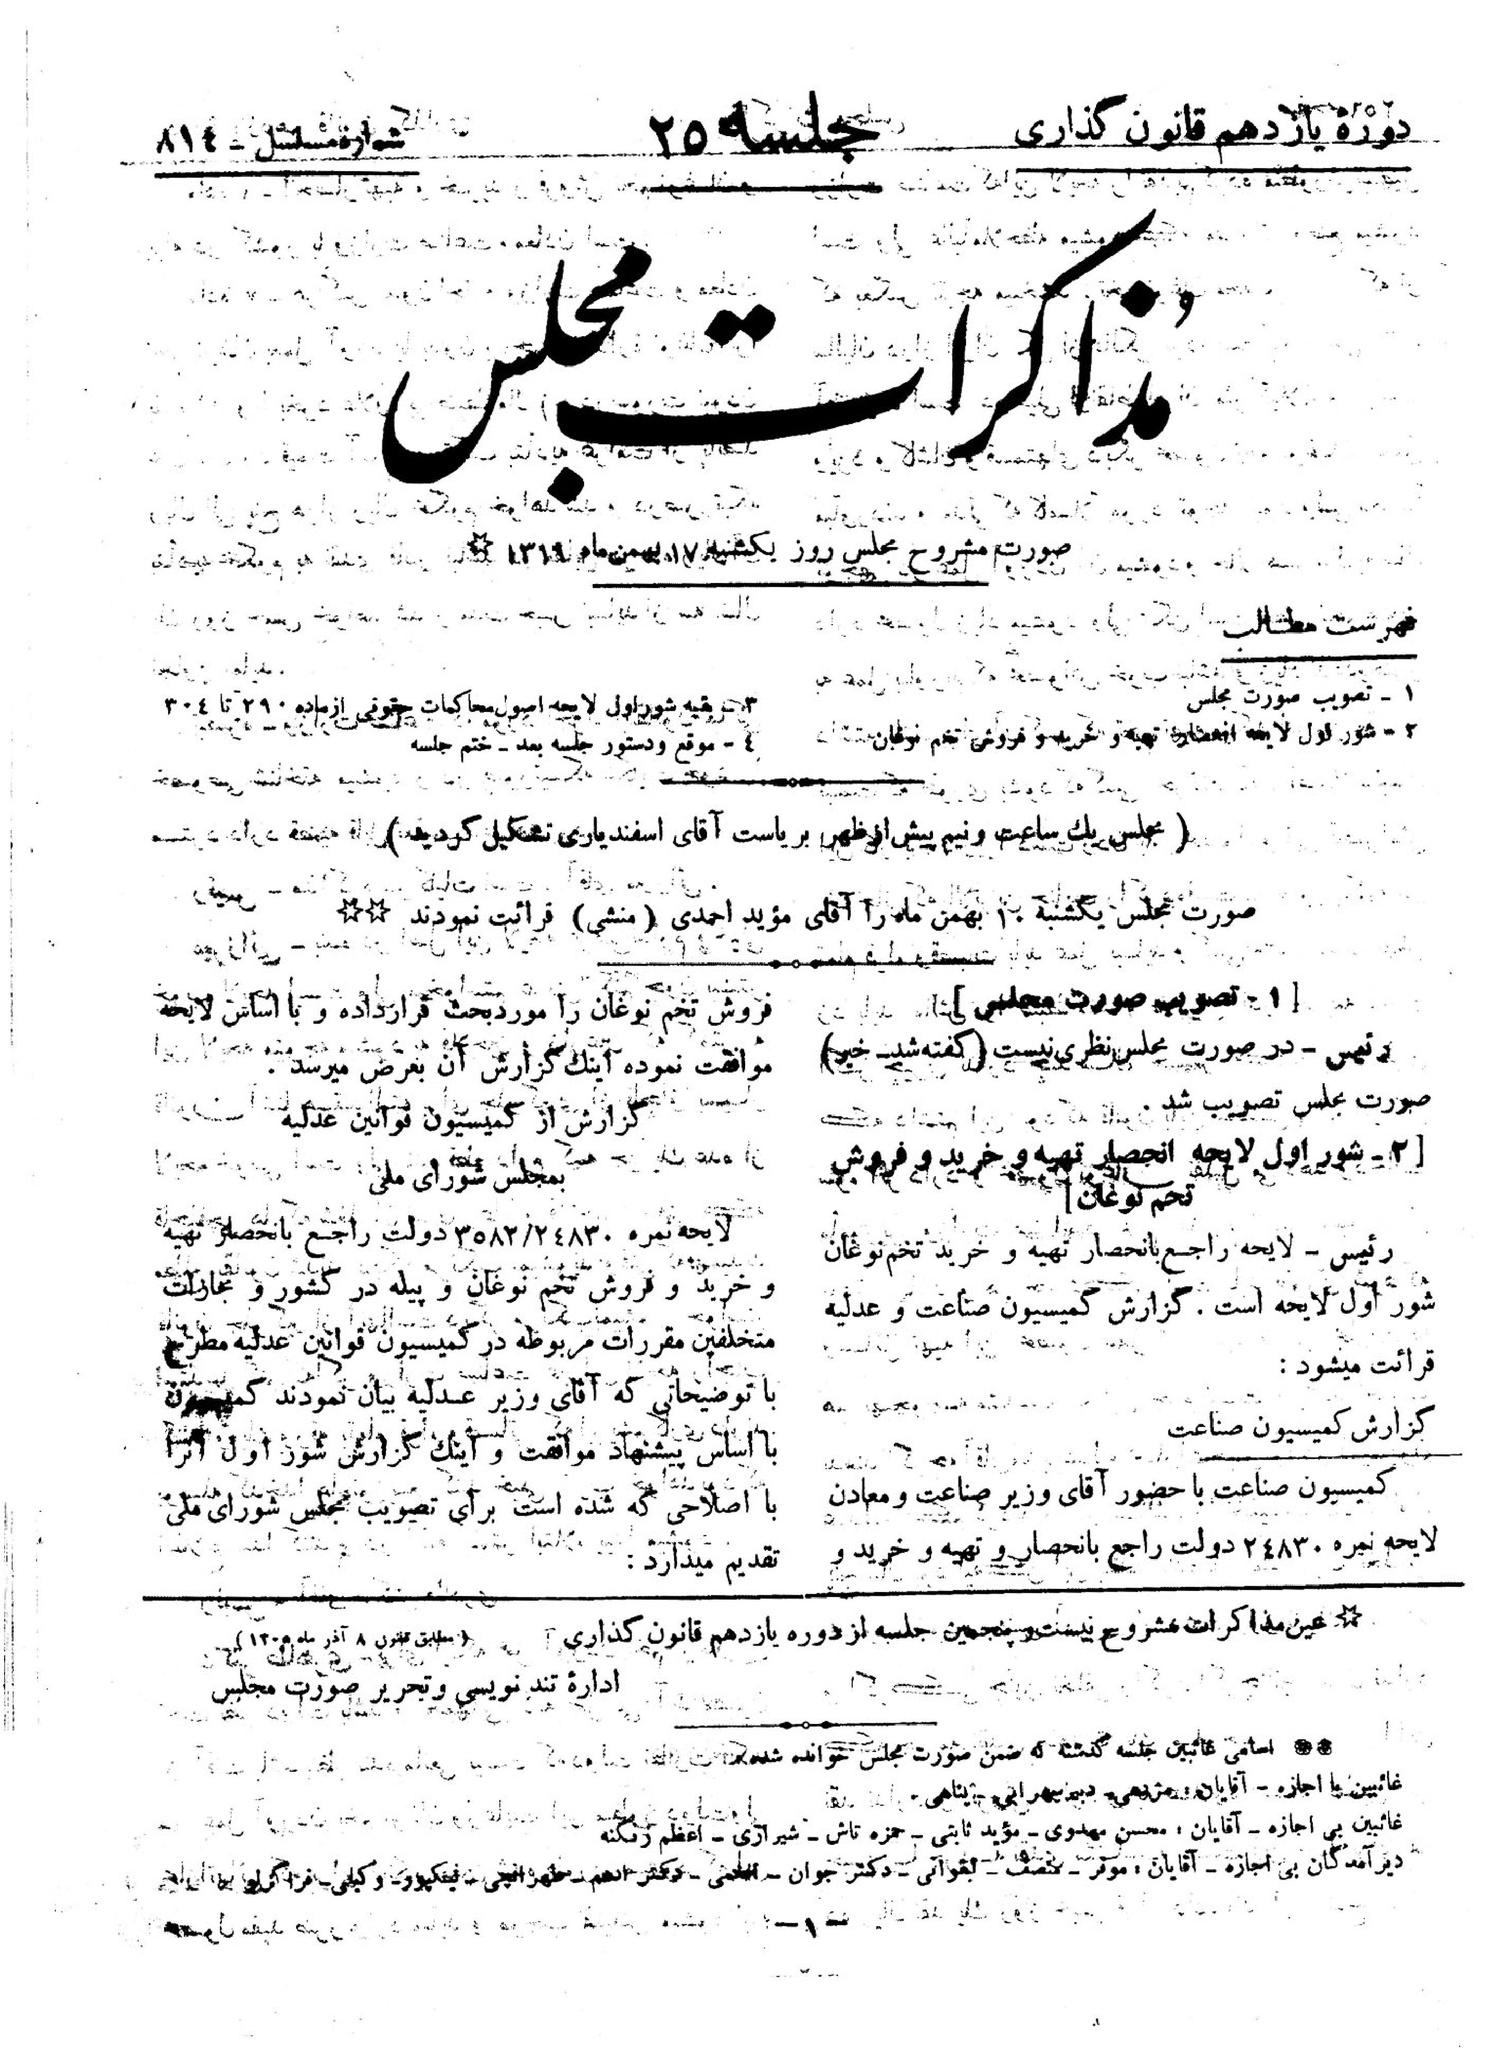 دورهٔ یازدهم قانون گذاری
جلسه ۲۵
شماره مسلسل - ۸۱۴
مذاکرات مجلس
صورت مشروح مجلس روز یکشنبه ۱۷ بهمن ماه ☆
فهرست مطالب
۱ - تصویب صورت مجلس
۲ - شور اول لایحه انحصار تهیه و خرید و فروش تخم نوغان
۳ - بقیه شور اول لایحه اصول محاکمات حقوقی از ماده ۲۹۰ تا ۳۰۴
۴ - موقع و دستور جلسه بعد - ختم جلسه
( مجلس یك ساعت و نیم پیش از ظهر بریاست آقای اسفندیاری تشکیل گردید )
صورت مجلس یکشنبه ۱۰ بهمن ماه را آقای مؤید احمدی (منشی) قرائت نمودند ☆☆
[ ۱ - تصویب صورت مجلس ]
رئیس - در صورت مجلس نظری نیست (گفته شد - خیر)
صورت مجلس تصویب شد .
[ ۲ - شور اول لایحه انحصار تهیه و خرید و فروش
تخم نوغان ]
رئیس - لایحه راجع بانحصار تهیه و خرید تخم نوغان
شور اول لایحه است . گزارش کمیسیون صناعت و عدلیه
قرائت میشود :
گزارش کمیسیون صناعت
کمیسیون صناعت با حضور آقای وزیر صناعت و معادن
لایحه نمره ۲۴۸۳۰ دولت راجع بانحصار و تهیه و خرید و
فروش تخم نوغان را مورد بحث قرار داده و با اساس لایحه
موافقت نموده اینك گزارش آن بعرض میرسد .
گزارش از کمیسیون قوانین عدلیه
بمجلس شورای ملی
لایحه نمره ۳۵۸۲/۲۴۸۳۰ دولت راجع بانحصار تهیه
و خرید و فروش تخم نوغان و پیله در کشور و مجازات
متخلفین مقررات مربوطه در کمیسیون قوانین عدلیه مطرح
با توضیحاتی که آقای وزیر عدلیه بیان نمودند کمیسیون
با اساس پیشنهاد موافقت و اینك گزارش شور اول آنرا
با اصلاحی که شده است برای تصویب مجلس شورای ملی
تقدیم میدارد :
☆ عین مذاکرات مشروح بیست و پنجمین جلسه از دوره یازدهم قانون گذاری
(مطابق قانون ۸ آذر ماه ۱۳۰۵)
ادارهٔ تند نویسی و تحریر صورت مجلس
❋❋ اسامی غائبین جلسه گذشته که ضمن صورت مجلس خوانده شده
غائبین با اجازه - آقایان : دبیر سهرابی - پناهی .
غائبین بی اجازه - آقایان : محسن مهدوی - مؤید ثابتی - حمزه تاش - شیرازی - اعظم زنگنه
دیرآمدگان بی اجازه - آقایان : موقر - منصف - لیقوانی - دکتر جوان - دکتر ادهم - طهرانچی - نیکپور - وکیلی -